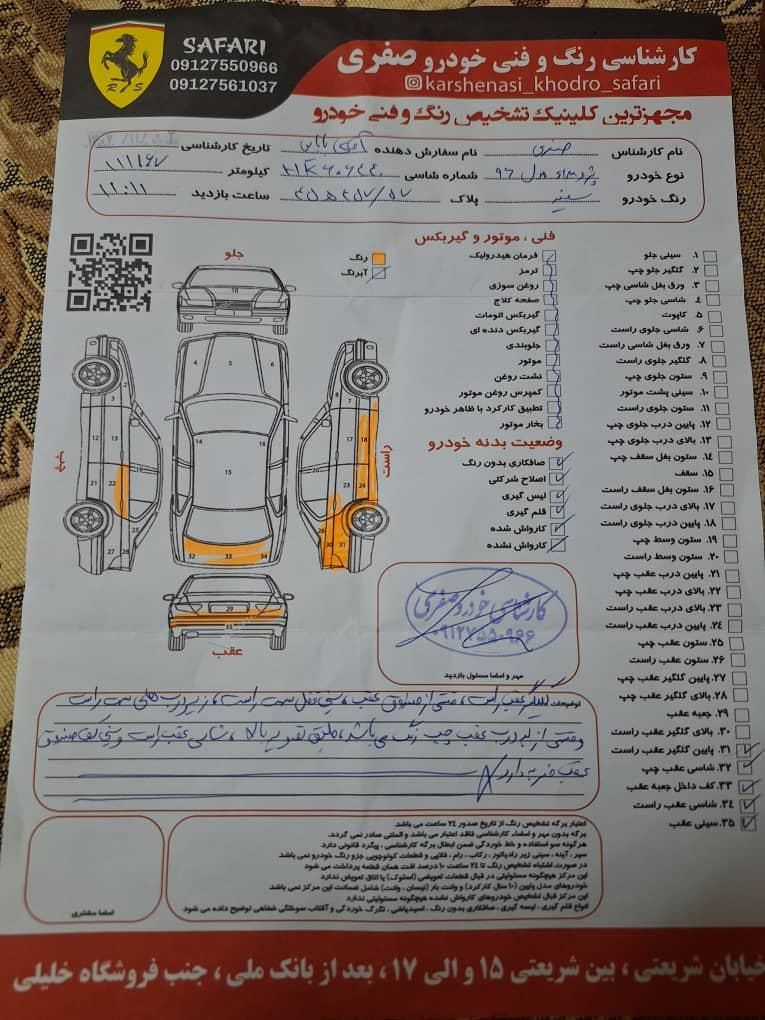 SAFARI
09127550966
09127561037
R S
کارشناسی رنگ و فنی خودرو صفری
karshenasi_khodro_safari
مجهزترین کلینیک تشخیص رنگ و فنی خودرو
نام کارشناس صفری نام سفارش دهنده آقای تاریخ کارشناسی
نوع خودرو مدل ۹۶ شماره شاسی کیلومتر ۱۱۱۱۶۷
رنگ خودرو سفید پلاک ساعت بازدید ۱۱:۱۱
فنی ، موتور و گیربکس
فرمان هیدرولیک
ترمز
روغن سوزی
صفحه کلاج
گیربکس اتومات
گیربکس دنده ای
جلوبندی
موتور
نشت روغن
کمپرس روغن موتور
تطبیق کارکرد با ظاهر خودرو
بخار موتور
وضعیت بدنه خودرو
صافکاری بدون رنگ
اصلاح شرکتی
لیس گیری
قلم گیری
کارواش شده
کارواش نشده
۱. سینی جلو
۲. گلگیر جلو چپ
۳. ورق بغل شاسی چپ
۴. شاسی جلو چپ
۵. کاپوت
۶. شاسی جلوی راست
۷. ورق بغل شاسی راست
۸. گلگیر جلوی راست
۹. ستون جلوی چپ
۱۰. سینی پشت موتور
۱۱. ستون جلوی راست
۱۲. پایین درب جلوی چپ
۱۳. بالای درب جلوی چپ
۱۴. ستون بغل سقف چپ
۱۵. سقف
۱۶. ستون بغل سقف راست
۱۷. بالای درب جلوی راست
۱۸. پایین درب جلوی راست
۱۹. ستون وسط چپ
۲۰. ستون وسط راست
۲۱. پایین درب عقب چپ
۲۲. بالای درب عقب چپ
۲۳. بالای درب عقب راست
۲۴. پایین درب عقب راست
۲۵. ستون عقب چپ
۲۶. ستون عقب راست
۲۷. پایین گلگیر عقب چپ
۲۸. بالای گلگیر عقب چپ
۲۹. جعبه عقب
۳۰. بالای گلگیر عقب راست
۳۱. پایین گلگیر عقب راست
۳۲. شاسی عقب چپ
۳۳. کف داخل جعبه عقب
۳۴. شاسی عقب راست
۳۵. سینی عقب
رنگ
آبرنگ
جلو
چپ
راست
عقب
کارشناسی خودرو صفری
۰۹۱۲۷۵۵۰۹۶۶
مهر و امضا مسئول بازدید
توضیحات گلگیر عقب راست، قسمتی از صندوق عقب، سمت راست، زیر درب های سمت راست
و قسمتی از درب عقب چپ رنگ می باشد، طبق تصویر بالا، شاسی عقب راست و کف صندوق
عقب ضربه دارد
اعتبار برگه تشخیص رنگ از تاریخ صدور ۲۴ ساعت می باشد
برگه بدون مهر و امضاء کارشناسی فاقد اعتبار می باشد و المثنی صادر نمی گردد.
هرگونه سو استفاده و خط خوردگی ضمن ابطال برگه کارشناسی ، پیگرد قانونی دارد
سپر ، آینه ، سینی زیر رادیاتور ، رکاب ، رام ، قلابی و قطعات کوئوچویی جزو رنگ خودرو نمی باشد
در صورت اشتباه تشخیص رنگ تا ۲۴ ساعت ۱۰ درصد افت همان قطعه پرداخت می شود
این مرکز هیچگونه مسئولیتی در قبال قطعات تعویضی (استوک) یا اتاق تعویض ندارد
خودروهای مدل پایین (۱۰ سال کارکرد) و وانت بار (نیسان ، وانت) شامل ضمانت این مرکز نمی باشد
این مرکز قبال تشخیص خودروهای کارواش نشده هیچگونه مسئولیتی ندارد
انواع قلم گیری ، لیسه گیری ، صافکاری بدون رنگ ، اسیدپاشی ، تگرگ خوردگی و آفتاب سوختگی شفاهی توضیح داده می شود
امضا مشتری
خیابان شریعتی ، بین شریعتی ۱۵ و الی ۱۷ ، بعد از بانک ملی ، جنب فروشگاه خلیلی